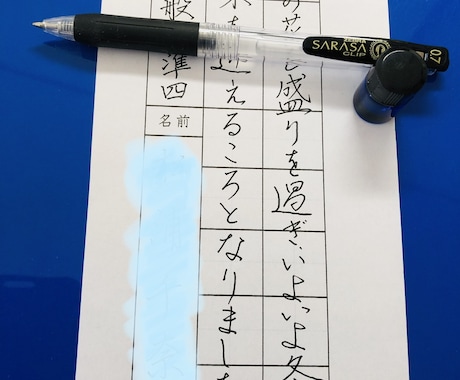 の花も盛りを過ぎ、いよいよ冬
を迎えるころとなりまし
般 準四
名前
SARASA
CLIP
0.7